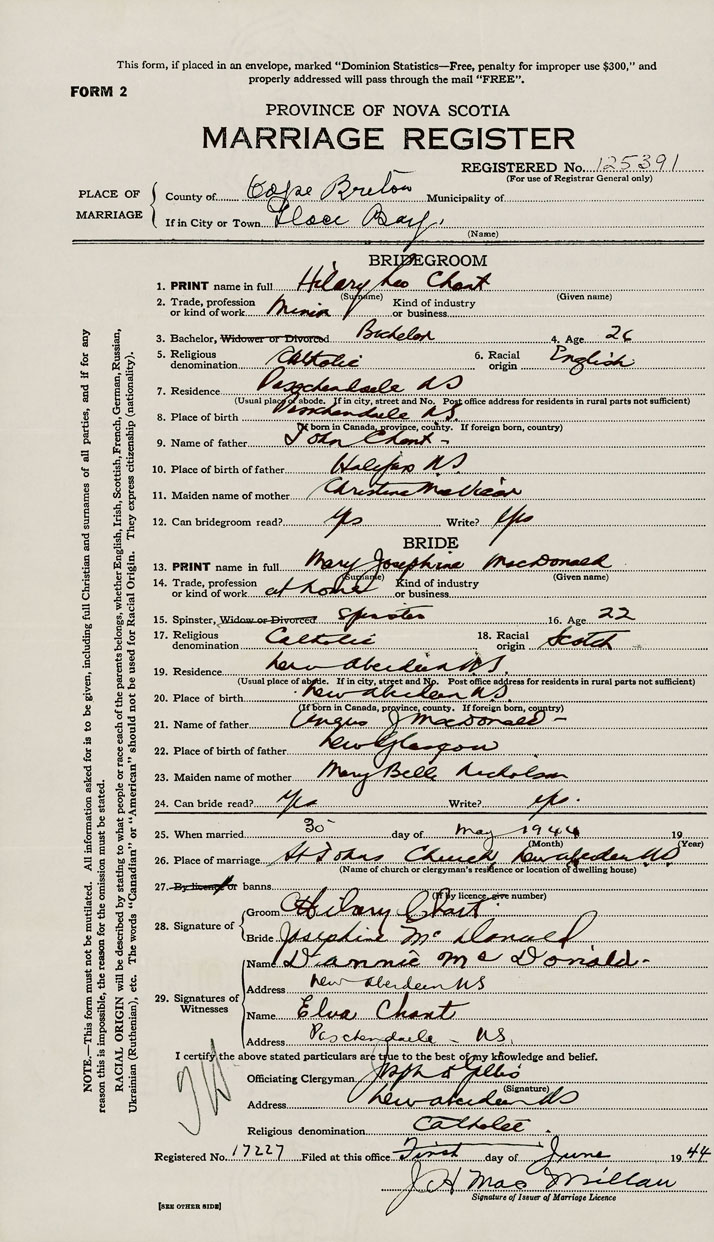 This form, if placed in an envelope, marked “Dominion Statistics—Free, penalty for improper use $300,” and
properly addressed will pass through the mail “FREE”.
FORM 2
PROVINCE OF NOVA SCOTIA
MARRIAGE REGISTER
REGISTERED No. 125391
(For use of Registrar General only)
PLACE OF MARRIAGE
County of Cape Breton Municipality of
If in City or Town Glace Bay.
(Name)
BRIDEGROOM
1. PRINT name in full Hilary Leo Chant
(Surname) (Given name)
2. Trade, profession or kind of work Miner Kind of industry or business
3. Bachelor, Widower or Divorced Bachelor 4. Age 26
5. Religious denomination Catholic 6. Racial origin English
7. Residence Passchendaele NS
(Usual place of abode. If in city, street and No. Post office address for residents in rural parts not sufficient)
8. Place of birth Passchendaele NS.
(If born in Canada, province, county. If foreign born, country)
9. Name of father John Chant -
10. Place of birth of father Halifax NS
11. Maiden name of mother Christina MacVicar
12. Can bridegroom read? yes Write? yes
BRIDE
13. PRINT name in full Mary Josephine MacDonald
(Surname) (Given name)
14. Trade, profession or kind of work at home Kind of industry or business
15. Spinster, Widow or Divorced Spinster 16. Age 22
17. Religious denomination Catholic 18. Racial origin Scotch
19. Residence New Aberdeen N.S.
(Usual place of abode. If in city, street and No. Post office address for residents in rural parts not sufficient)
20. Place of birth New Aberdeen N.S.
(If born in Canada, province, county. If foreign born, country)
21. Name of father Angus J MacDonald -
22. Place of birth of father New Glasgow
23. Maiden name of mother Mary Bell Nicholson
24. Can bride read? Yes Write? yes.
25. When married 30 day of May 1944 19
(Month) (Year)
26. Place of marriage St Johns Church New Aberdeen NS
(Name of church or clergyman's residence or location of dwelling house)
27. By licence or banns
(If by licence, give number)
28. Signature of
Groom Hilary Chant
Bride Josephine McDonald
29. Signatures of Witnesses
Name Dannie McDonald-
Address New Aberdeen NS
Name Elva Chant
Address Paschendaele - NS.
I certify the above stated particulars are true to the best of my knowledge and belief.
Officiating Clergyman
(Signature)
Address New Aberdeen NS
Religious denomination Catholic.
Registered No. 17227 Filed at this office First day of June 1944
J H MacMillan
Signature of Issuer of Marriage Licence
[SEE OTHER SIDE]
NOTE.—This form must not be mutilated. All information asked for is to be given, including full Christian and surnames of all parties, and if for any
reason this is impossible, the reason for the omission must be stated.
RACIAL ORIGIN will be described by stating to what people or race each of the parents belongs, whether English, Irish, Scottish, French, German, Russian,
Ukrainian (Ruthenian), etc. The words “Canadian” or “American” should not be used for Racial Origin. They express citizenship (nationality).